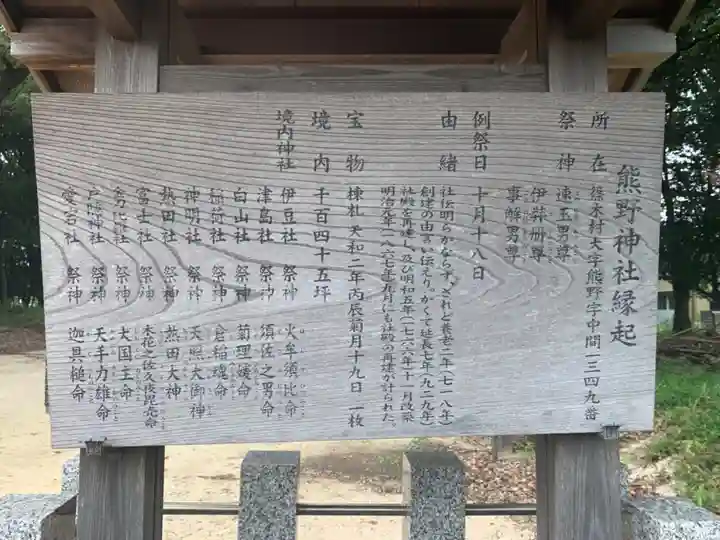 熊野神社縁起
所在 篠木村大字熊野字中間一三四九番
祭神 速玉男尊
伊弉冊尊
事解男尊
例祭日 十月十八日
由緒 社伝明らかならず、されど養老二年(七一八年)
創建の由言い伝えり。かくて延長七年(九二九年)
社殿を再建し、及び明和五年(一七六六年十一月改築
明治元年(一八六七年九月にも社殿の再建が計られた。
宝物 棟札 天和二年丙辰菊月十九日一枚
境内 千百四十五坪
境内神社 伊豆社 祭神 火牟須比命
津島社 祭神 須佐之男命
白山社 祭神 菊理媛命
稲荷社 祭神 倉稲魂命
神明社 祭神 天照大御神
熱田社 祭神 熱田大神
富士社 祭神 木花之佐久夜毘売命
祭神 大国主命
戸隠神社 祭神 天手力雄命
愛宕社 祭神 迦具槌命